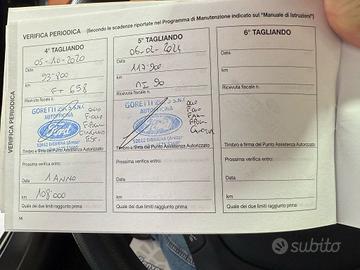 VERIFICA PERIODICA (Secondo le scadenze riportate nel Programma di Manutenzione indicato sul "Manuale di Istruzioni")
VERIFICA PERIODICA
4° TAGLIANDO
05-10-2020
Data
93.400
km
FT 658
Ricevuta fiscale n.
GORETTI
AUTOFFICINA
Ford
OLIO
F.OLIO
Timbro e firma del Punto Assistenza Autorizzato
Prossima verifica entro:
1 ANNO
Data
108.000
km
Quale dei due limiti raggiunto prima
5° TAGLIANDO
06-02-2024
Data
117.900
km
90
Ricevuta fiscale n.
GORETTI
AUTOFFICINA
Ford
OLIO
Timbro e firma del Punto Assistenza Autorizzato
Prossima verifica entro:
Data
km
Quale dei due limiti raggiunto prima
6° TAGLIANDO
Data
km
Ricevuta fiscale n.
Timbro e firma del Punto Assistenza Autorizzato
Prossima verifica entro:
Data
km
Quale dei due limiti raggiunto prima
subito